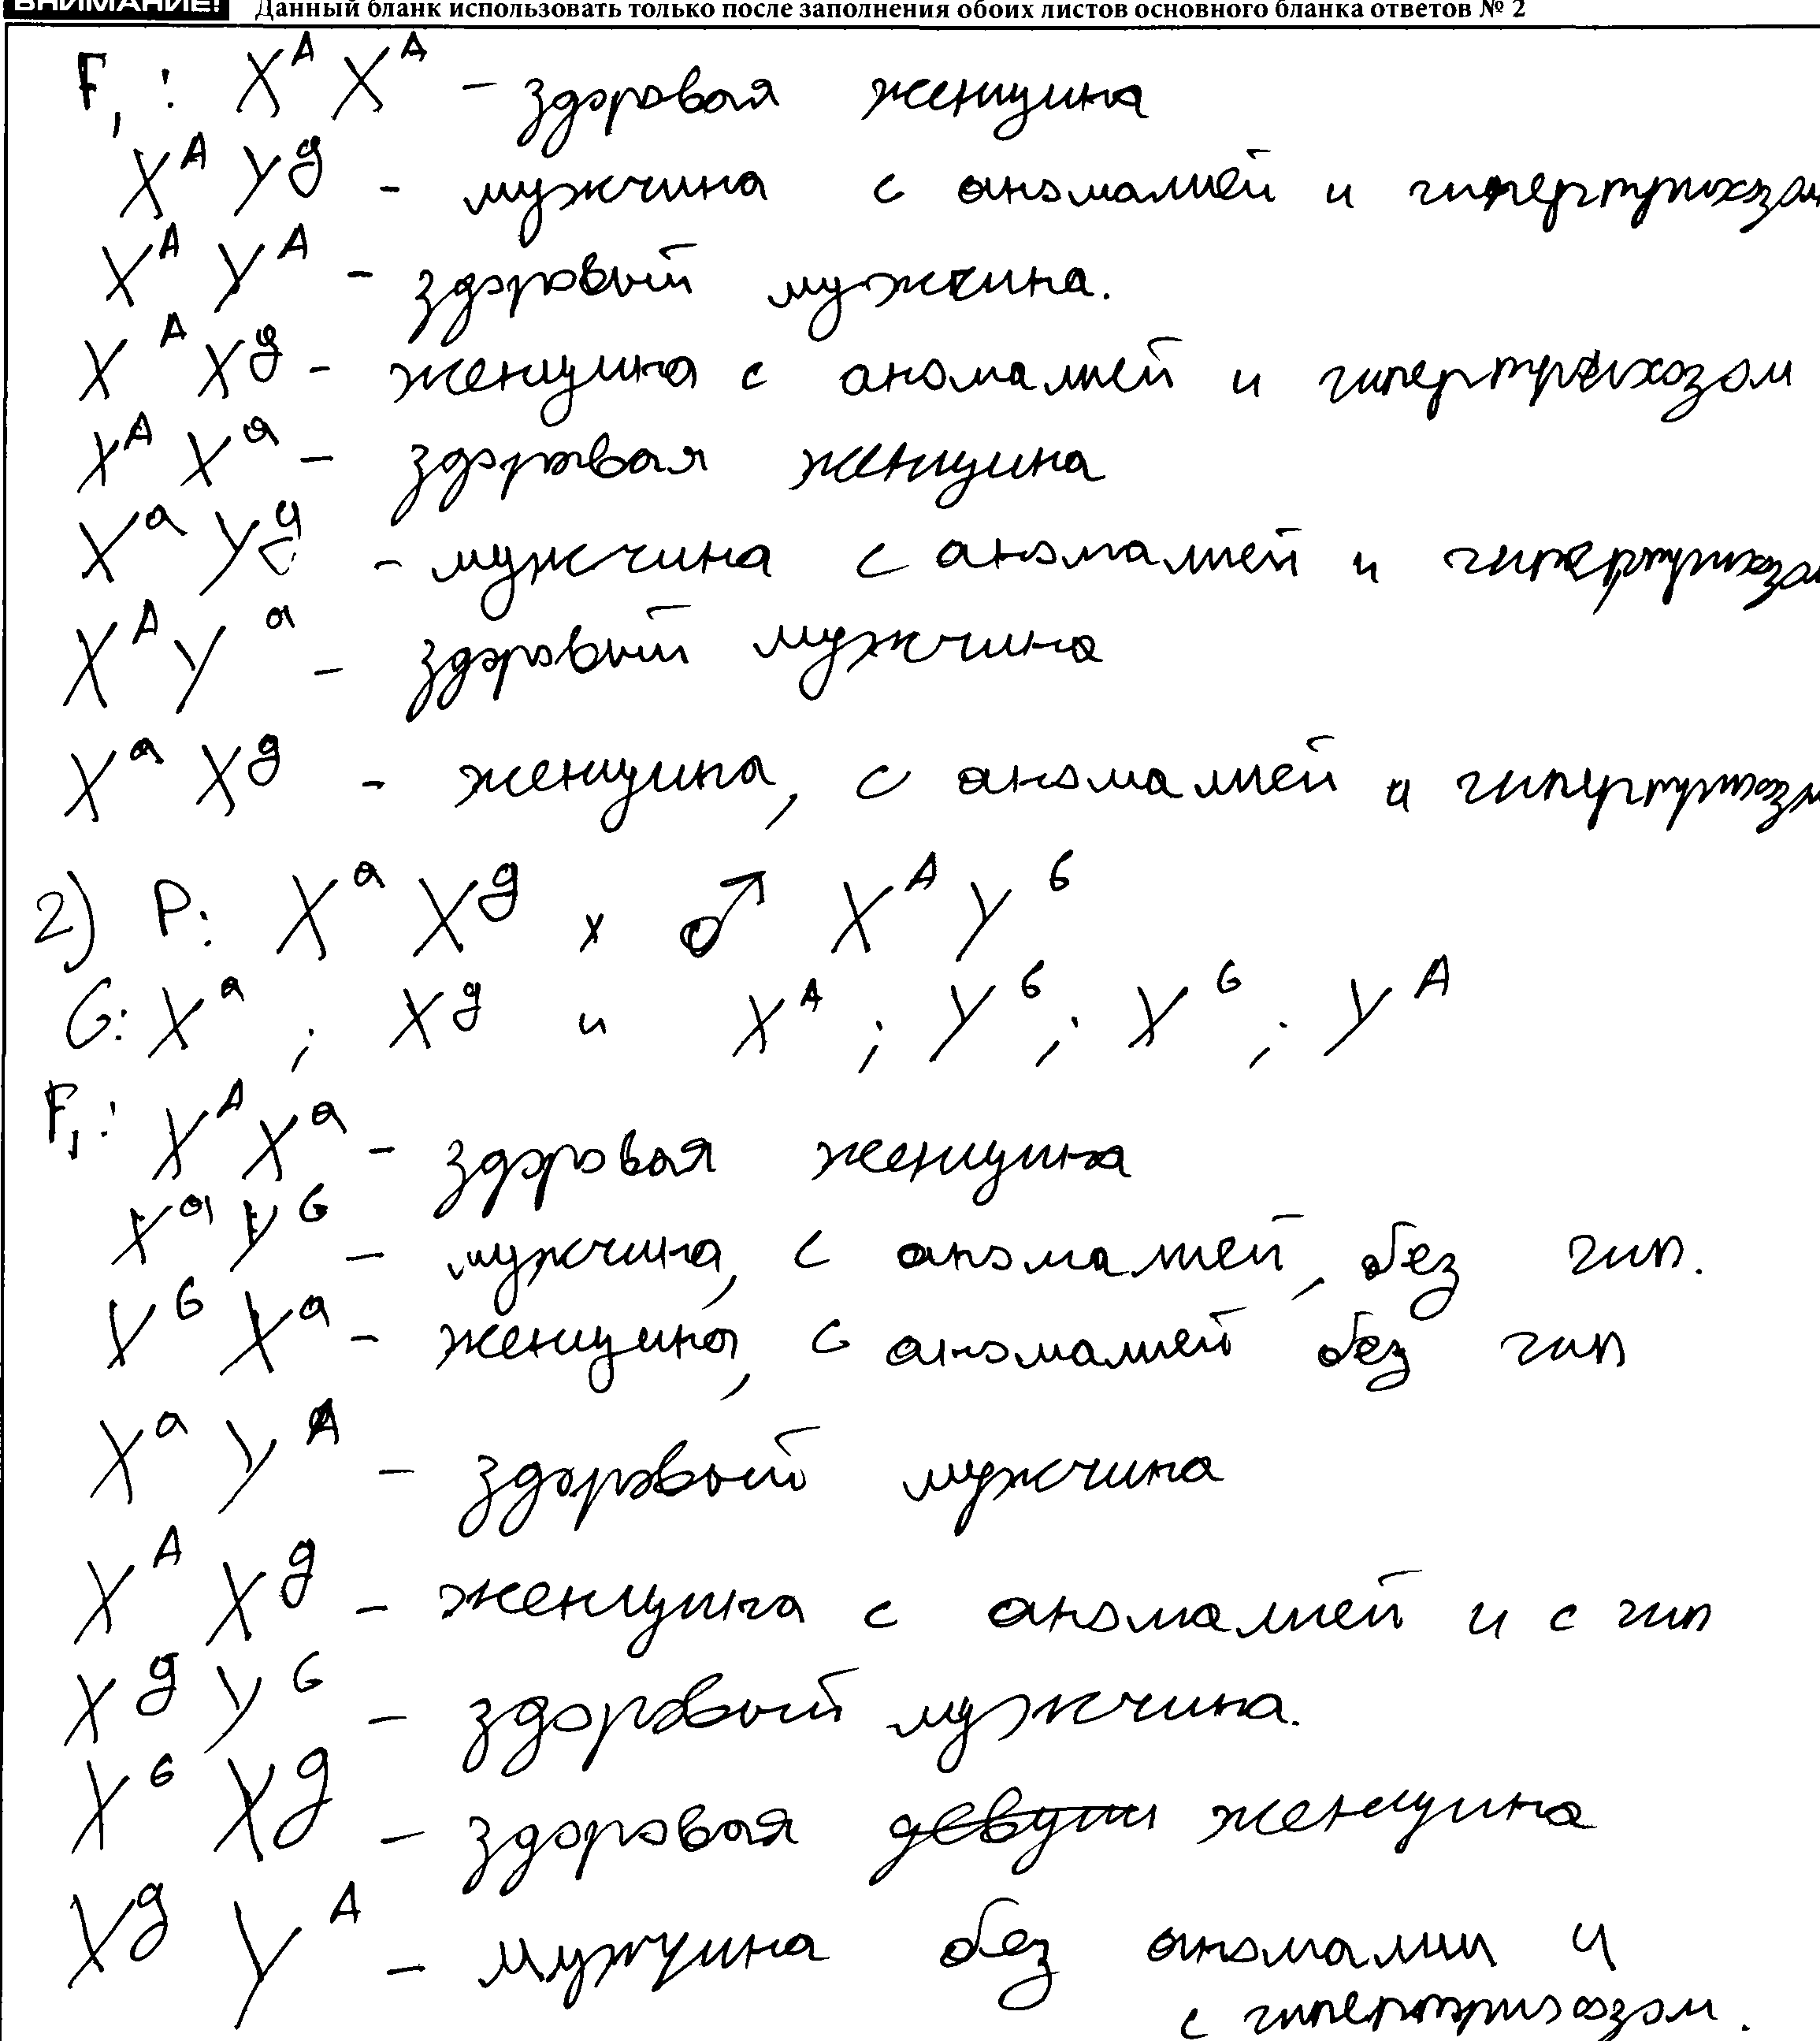 ВНИМАНИЕ! Данный бланк использовать только после заполнения обоих листов основного бланка ответов № 2
F₁: Xᴬ Xᴬ – здоровая женщина
Xᴬ Yg – мужчина с аномалией и гипертрихозом
Xᴬ Yᴬ – здоровый мужчина.
Xᴬ Xg – женщина с аномалией и гипертрихозом
Xᴬ Xᵃ – здоровая женщина
Xᵃ Yg – мужчина с аномалией и гипертрихозом
Xᴬ Yᵃ – здоровый мужчина
Xᵃ Xg – женщина, с аномалией и гипертрихозм
2) P: Xᵃ Xg x ♂ Xᴬ Yᴳ
G: Xᵃ ; Xg и Xᴬ ; Yᴳ ; Xᴳ ; Yᴬ
F₁: Xᴬ Xᵃ – здоровая женщина
Xᵃ Yᴳ – мужчина, с аномалией, без гип.
Xᴳ Xᵃ – женщина, с аномалией без гип
Xᵃ Yᴬ – здоровый мужчина
Xᴬ Xg – женщина с аномалией и с гип
Xg Yᴳ – здоровый мужчина.
Xᴳ Xg – здоровая девуш женщина
Xg Yᴬ – мужчина без аномалии и
с гипертризозом.